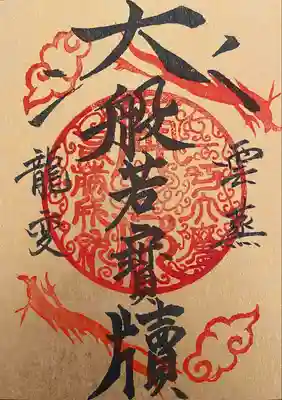 雲蒸
大般若寶牘
龍変